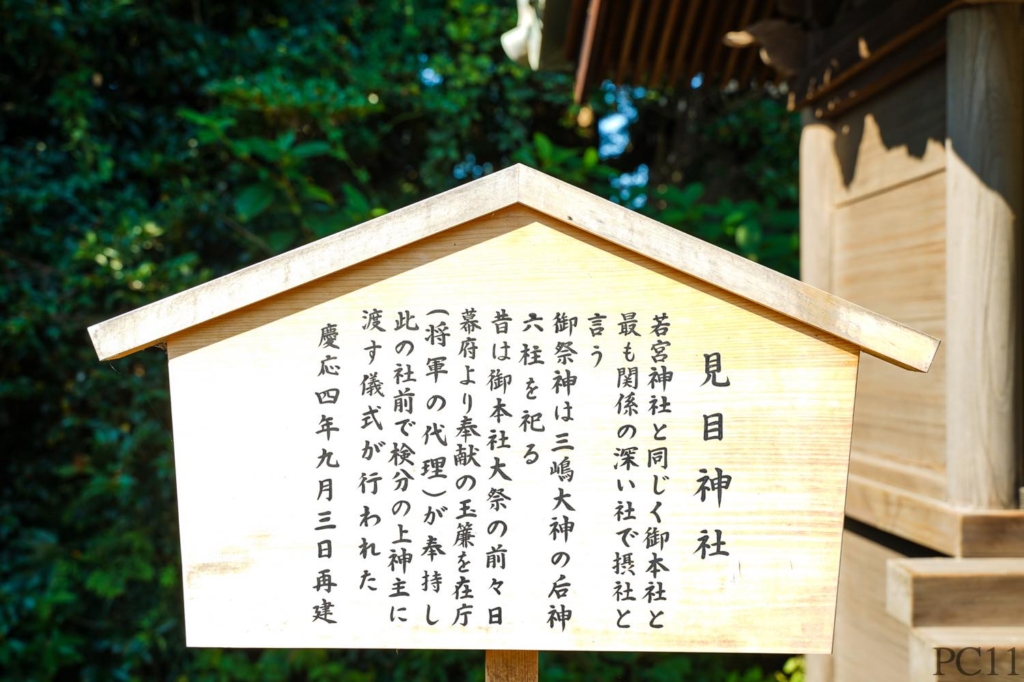 見目神社
若宮神社と同じく御本社と
最も関係の深い社で摂社と
言う
御祭神は三嶋大神の后神
六柱を祀る
昔は御本社大祭の前々日
幕府より奉献の玉簾を在庁
(将軍の代理)が奉持し
此の社前で検分の上神主に
渡す儀式が行われた
慶応四年九月三日再建
PC11